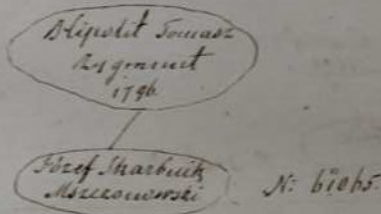 Hipolit Tomasz
Zygmunt
1796.
Józef Skarbnik
Mszczonowski
N: 61065.